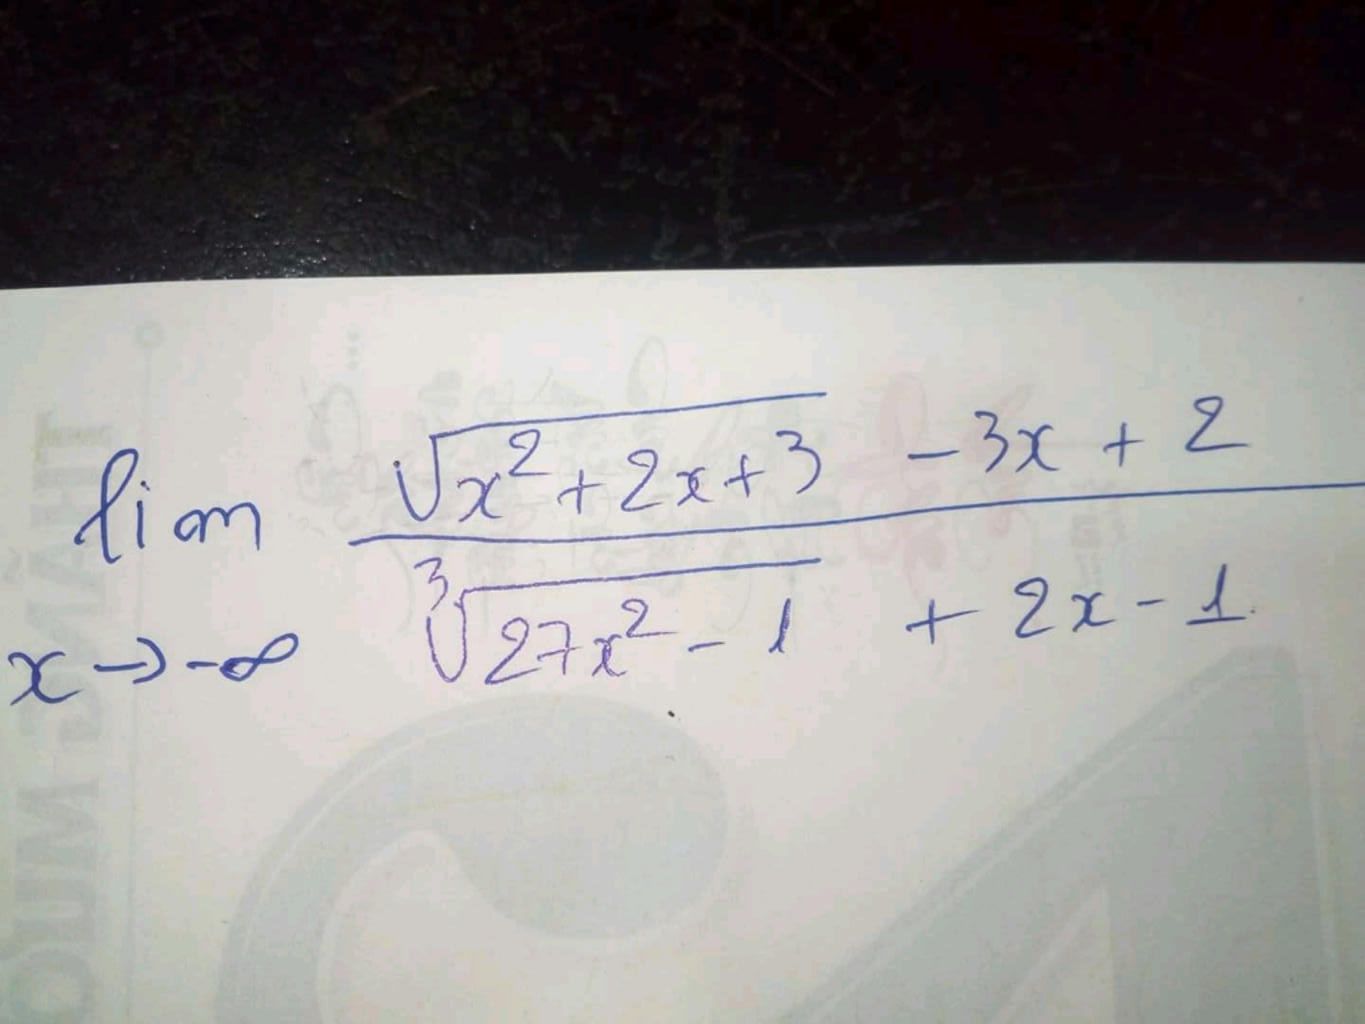 lim √(x² + 2x + 3) - 3x + 2
x → -∞ ∛(27x² - 1) + 2x - 1